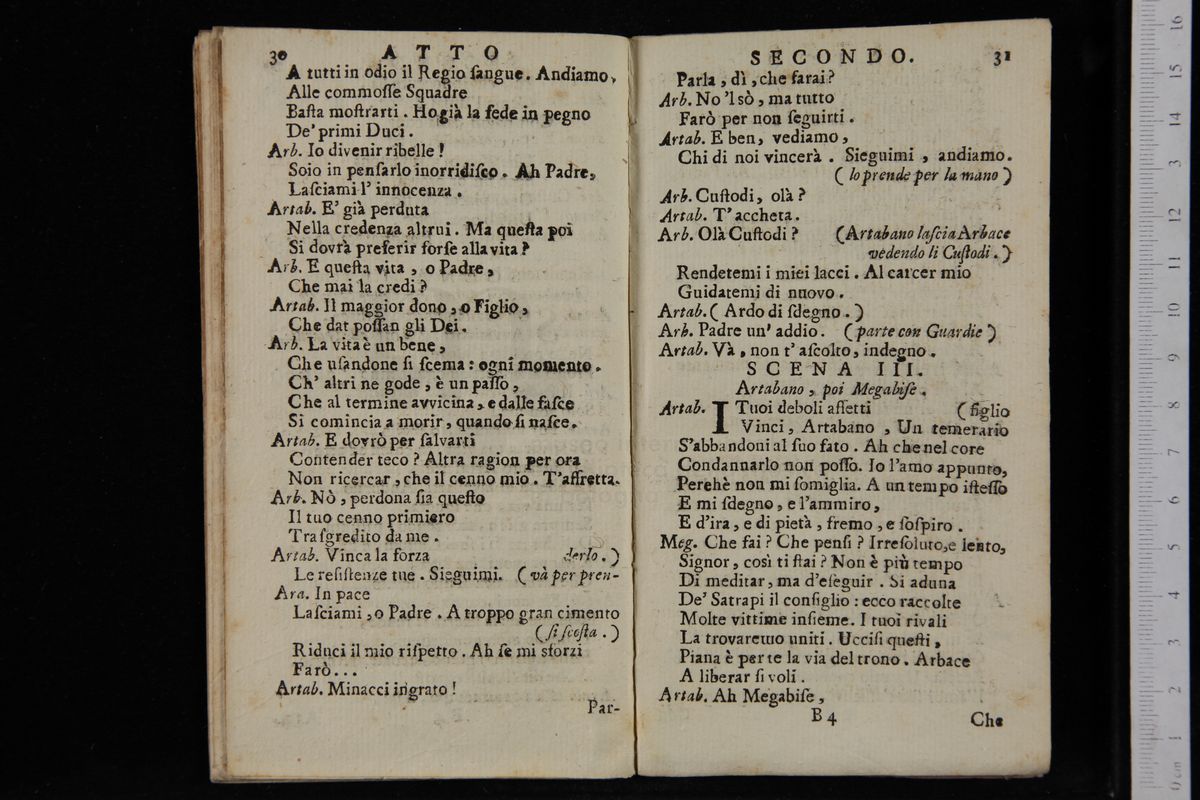 30 ATTO
A tutti in odio il Regio ſangue. Andiamo,
Alle commoſſe Squadre
Baſta moſtrarti. Ho già la fede in pegno
De' primi Duci.
Arb. Io divenir ribelle!
Soio in penſarlo inorridiſco. Ah Padre,
Laſciami l' innocenza.
Artab. E' già perduta
Nella credenza altrui. Ma queſta poi
Si dovrà preferir forſe alla vita?
Arb. E queſta vita, o Padre,
Che mai la credi?
Artab. Il maggior dono, o Figlio,
Che dat poſſan gli Dei.
Arb. La vita è un bene,
Che uſandone ſi ſcema: ogni momento.
Ch' altri ne gode, è un paſſo,
Che al termine avvicina, e dalle faſce
Si comincia a morir, quando ſi naſce.
Artab. E dovrò per ſalvarti
Contender teco? Altra ragion per ora
Non ricercar, che il cenno mio. T'affretta.
Arb. Nò, perdona ſia queſto
Il tuo cenno primiero
Traſgredito da me.
Artab. Vinca la forza derlo.)
Le reſiſtenze tue. Sieguimi. (và per pren-
Ara. In pace
Laſciami, o Padre. A troppo gran cimento
(ſi ſcoſta.)
Riduci il mio riſpetto. Ah ſe mi sforzi
Farò...
Artab. Minacci ingrato!
Par-
SECONDO. 31
Parla, dì, che farai?
Arb. No 'l sò, ma tutto
Farò per non ſeguirti.
Artab. E ben, vediamo,
Chi di noi vincerà. Sieguimi, andiamo.
(lo prende per la mano)
Arb. Cuſtodi, olà?
Artab. T' accheta.
Arb. Olà Cuſtodi? (Artabano laſcia Arbace
vedendo li Cuſtodi.)
Rendetemi i miei lacci. Al carcer mio
Guidatemi di nuovo.
Artab. (Ardo di ſdegno.)
Arb. Padre un' addio. (parte con Guardie)
Artab. Và, non t' aſcolto, indegno.
SCENA III.
Artabano, poi Megabiſe.
Artab. I Tuoi deboli affetti (figlio
Vinci, Artabano, Un temerario
S'abbandoni al ſuo fato. Ah che nel core
Condannarlo non poſſo. Io l'amo appunto,
Perehè non mi ſomiglia. A un tempo iſteſſo
E mi ſdegno, e l'ammiro,
E d'ira, e di pietà, fremo, e ſoſpiro.
Meg. Che fai? Che penſi? Irreſoluto, e lento,
Signor, così ti ſtai? Non è più tempo
Di meditar, ma d'eſeguir. Si aduna
De' Satrapi il configlio: ecco raccolte
Molte vittime inſieme. I tuoi rivali
La trovaremo uniti. Ucciſi queſti,
Piana è per te la via del trono. Arbace
A liberar ſi voli.
Artab. Ah Megabiſe,
B 4 Che